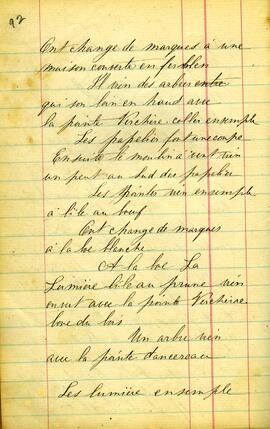 92
Ont change de marques à une
maison couverte en ferblen
Il vien des arbres entre
qui son loin en haud avec
la pointe Verchère coller ensemple
Les papelier font une coupe
Ensuite le moulin à vent vien
un peut au sud des papelier
Les pointes vien ensemple
à l'ile au beuf
Ont change de marques
à la boe blanche
A la boe La
Lumière l'ile au prune vien
ensuit avec la pointe Vercheire
boue du bois
Un arbre vien
avec la pointe
Les lumière ensemple